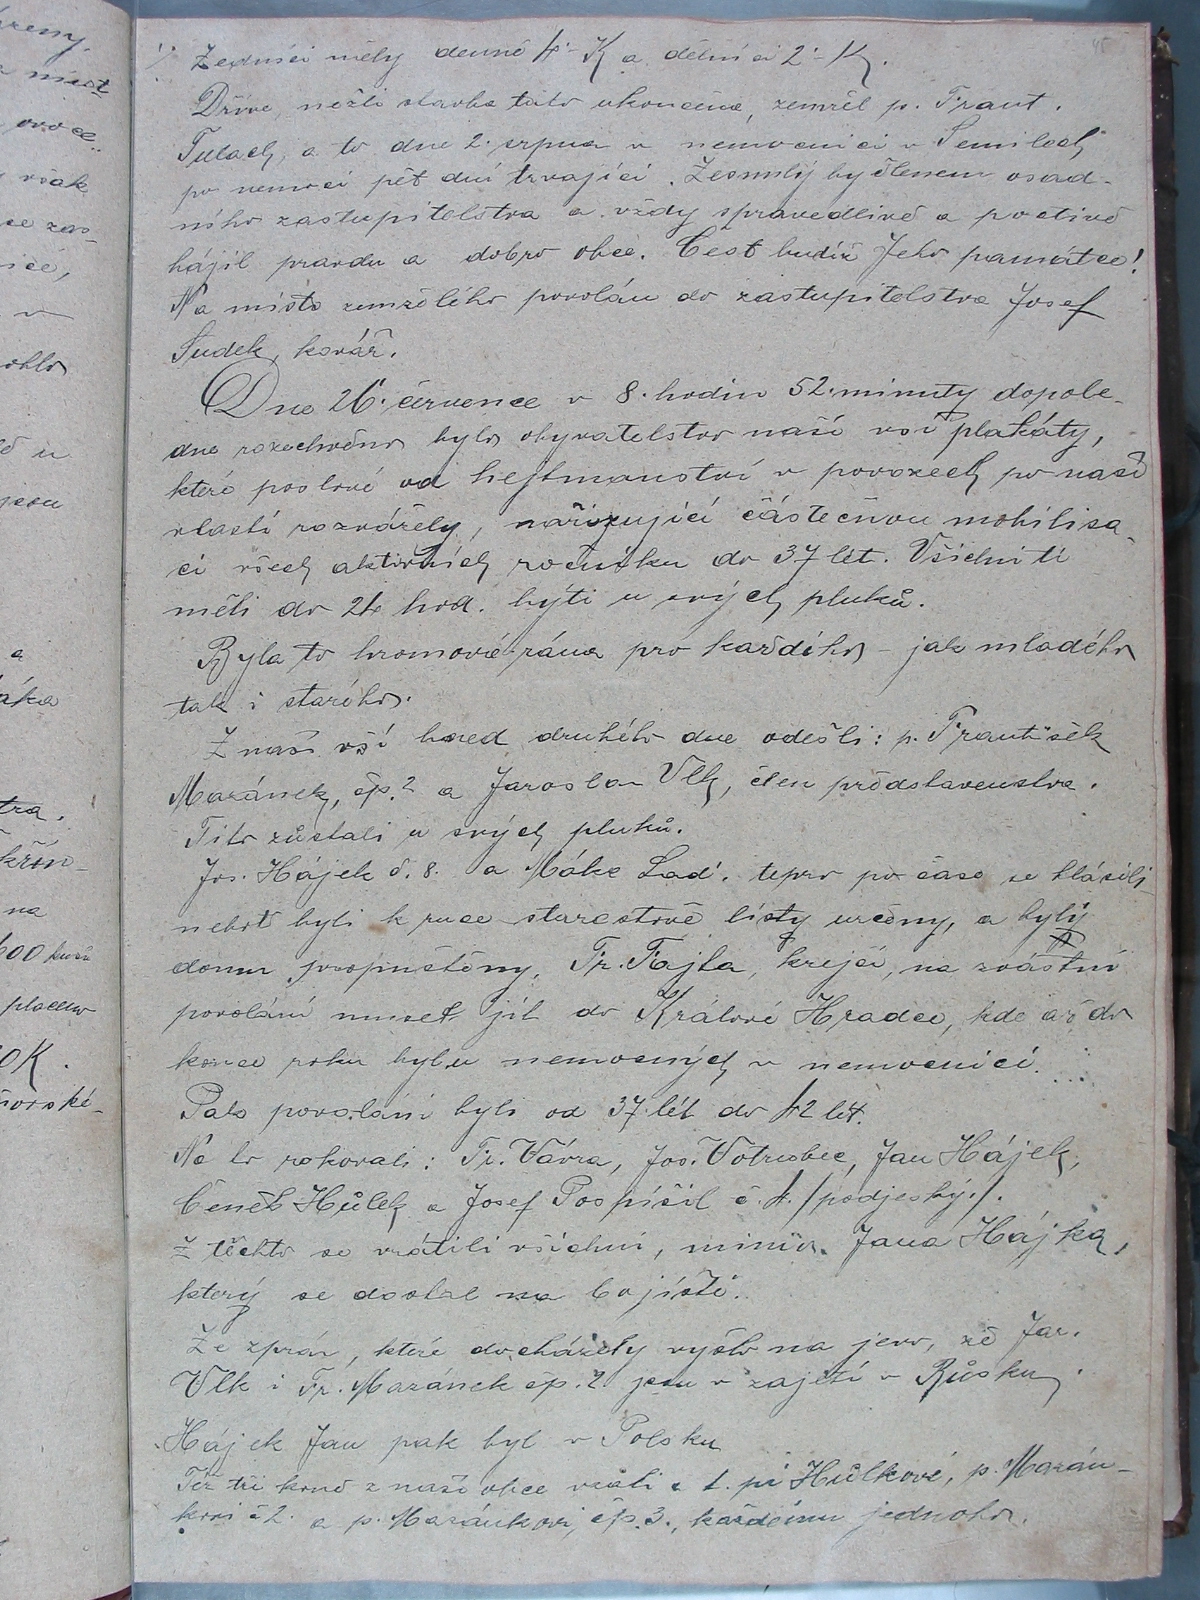 reny.
a míst
ovoce
však
ce zas-
nice,
v
ohlo
u
jsou
a
áka
tra.
křin-
na
600 kusů
placeno
0K.
horské-
45
Zedníci měly denně 4·-K a dělníci 2·-K.
Dříve, nežli stavba tato ukončena, zemřel p. Frant.
Tulach, a to dne 2. srpna v nemocnici v Semilech
po nemoci pět dní trvající. Zesnulý by členem osad-
ního zastupitelstva a vždy spravedlivě a poctivě
hájil pravdu a dobro obce. Čest budiž Jeho památce!
Na místo zemřelého povolán do zastupitelstva Josef
Sudek, kovář.
Dne 26. července v 8. hodin 52. minuty dopole-
dne rozechvěno bylo obyvatelstvo naší vsi plakáty,
které poslové od hejtmanství v povozech po naší
vlasti rozvážely, nařizující částečnou mobilisa-
ci všech aktivních ročníku do 37 lét. Všichni ti
měli do 24 hod. býti u svých pluků.
Byla to hromová rána pro každého - jak mladého
tak i starého.
Z naší vsí hned druhého dne odešli: p. František
Mazánek, čp. 2 a Jaroslav Vlk, člen představenstva.
Tito zůstali u svých pluků.
Jos. Hájek č. 8. a Máke Lad. teprv po čase se hlásili
neboť byli k ruce starostově listy určeny, a byly
domu propuštěny. Fr. Fajta, krejčí, na zvláštní
povolání muset jít do Králové Hradce, kde až do
konce roku byl u nemocných v nemocnici.
Pak povoláni byli od 37 lét do 42 lét.
Na to rokovali: Fr. Vávra, Jos. Votrubec, Jan Hájek,
Čeněk Hůlek a Josef Pospíšil č. 4. /podjeský./.
Z těchto se vrátili všichni, mimo Jana Hájka,
který se dostal na bojiště.
Ze zpráv, které docházely vyšlo na jevo, že Jar.
Vlk i Fr. Mazánek čp. 2 jsou v zajetí v Růsku.
Hájek Jan pak byl v Polsku
Též tři koně z naší obce vzali: 1. pí Hůlkové, p. Mazán-
kovi č 2. a p. Mazánkovi, čp. 3., každému jednoho.